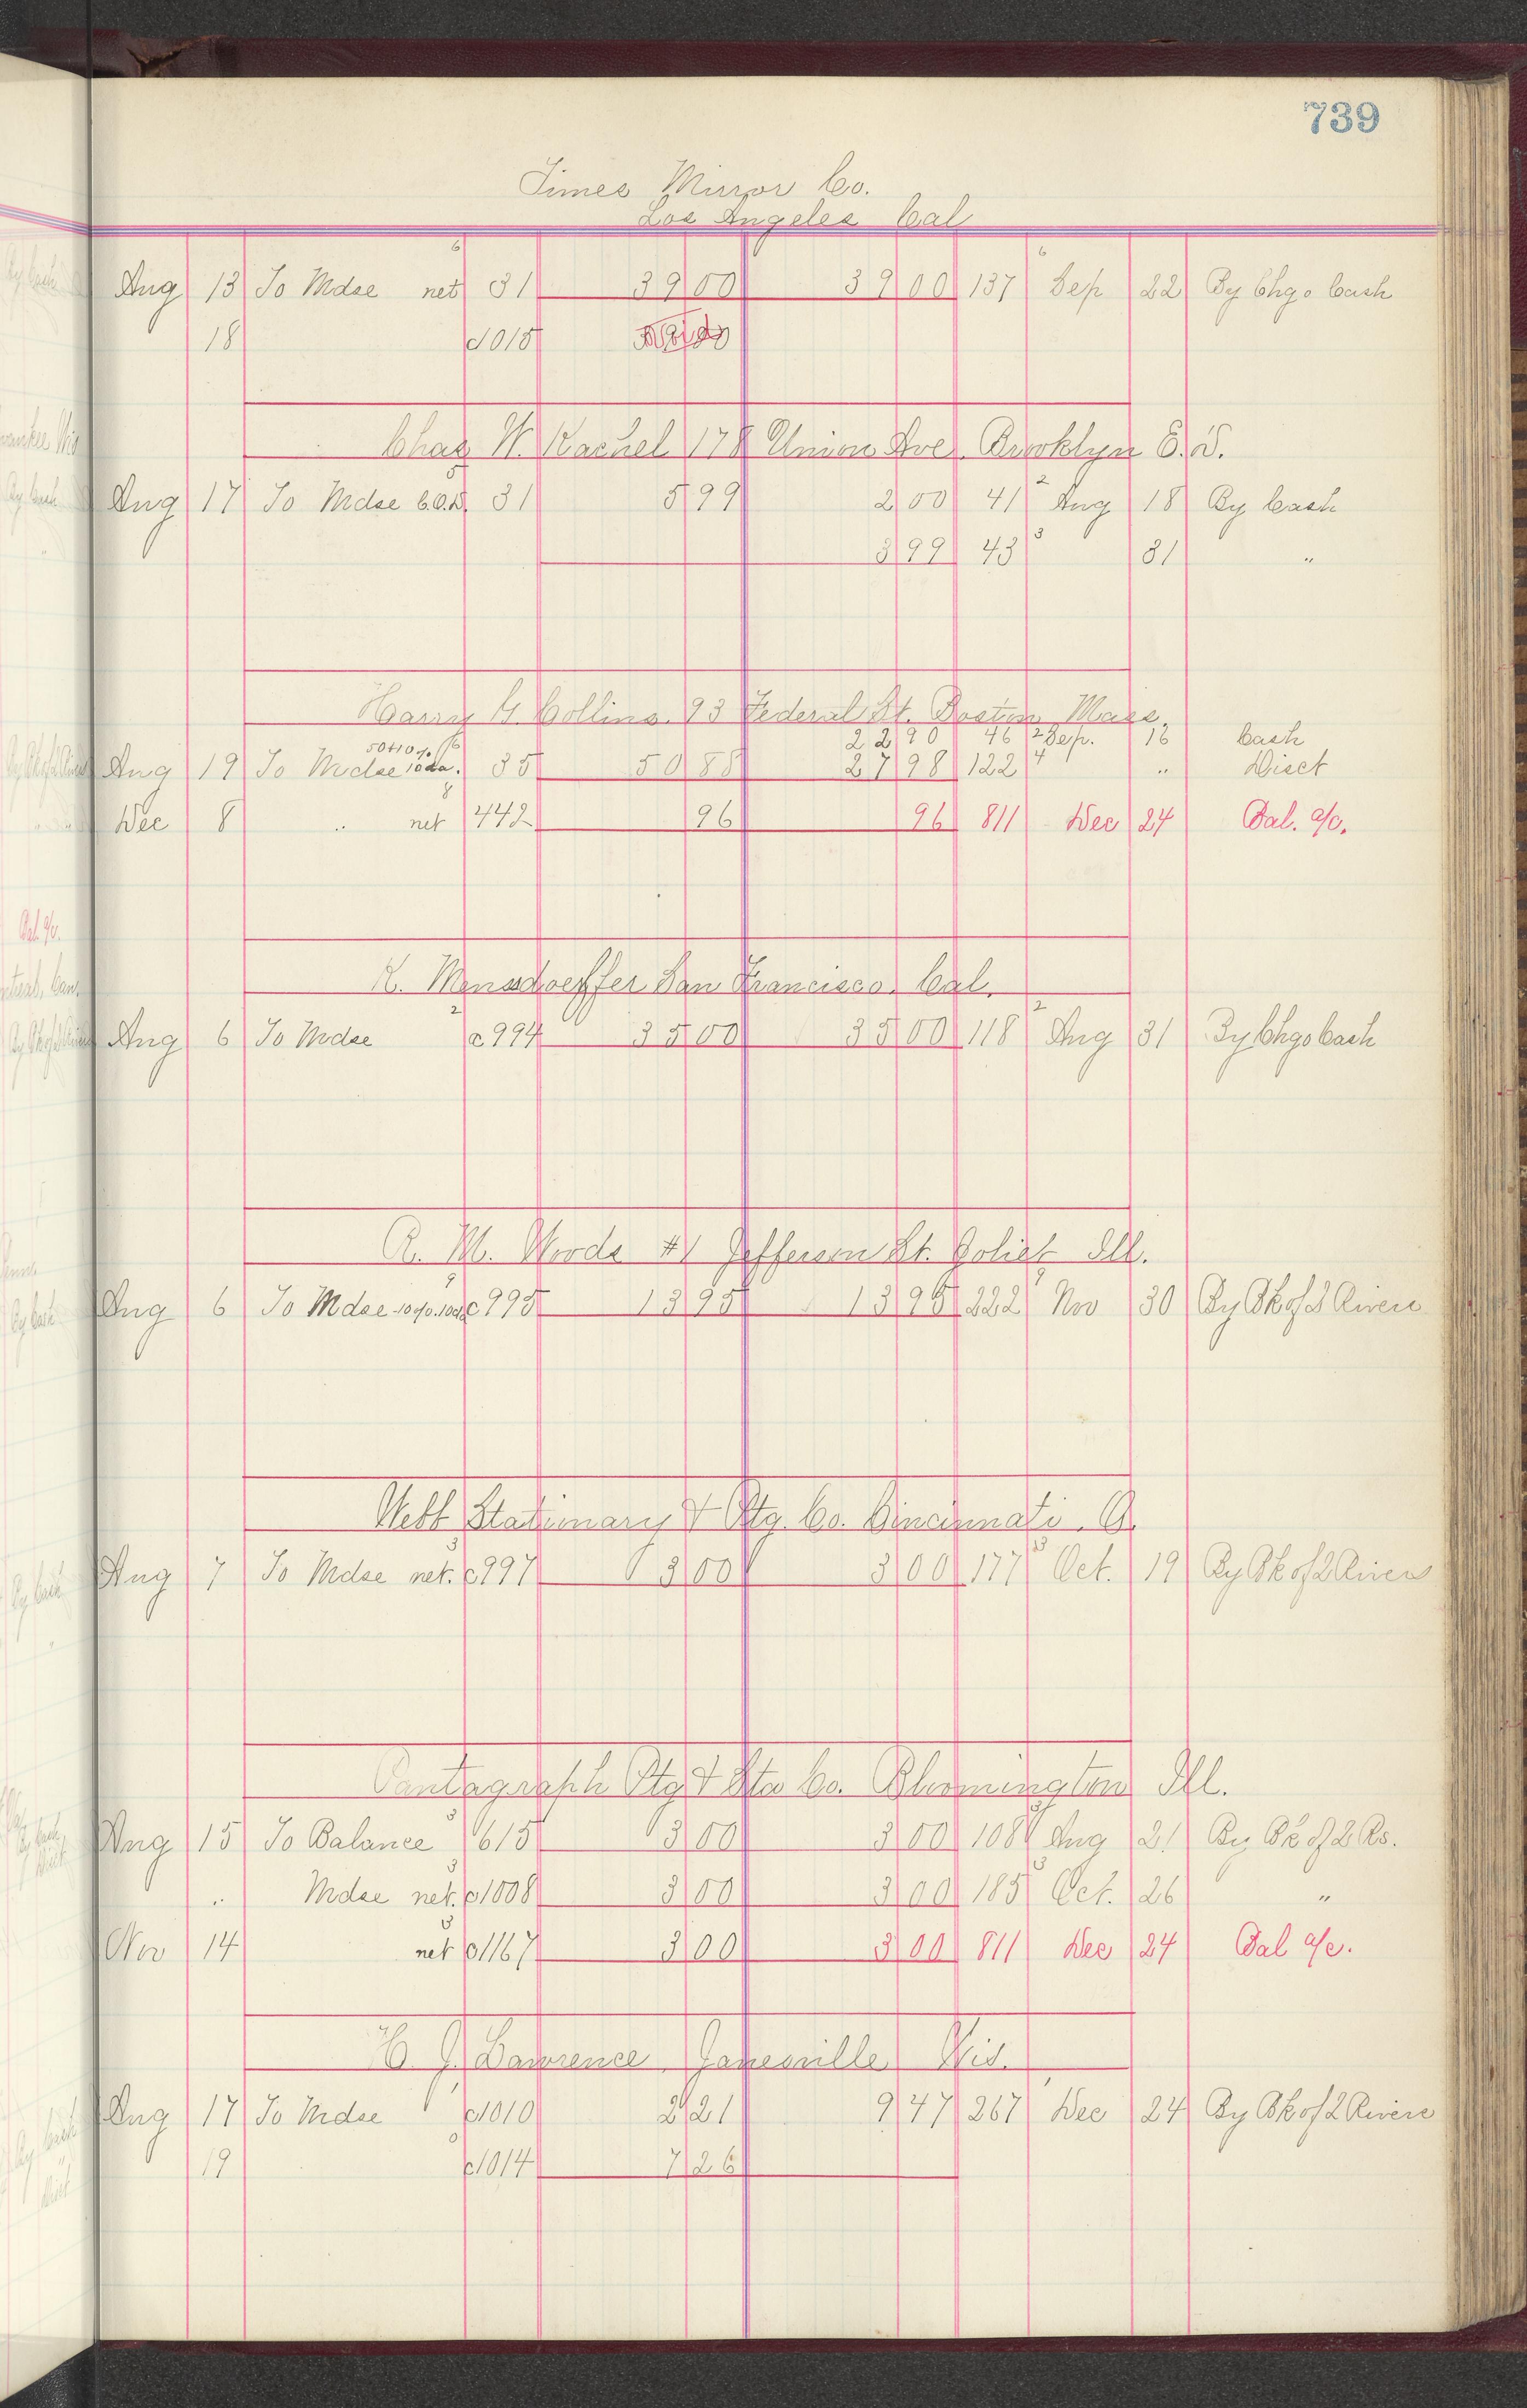 739
Times Mirror Co.
Los Angeles Cal
Aug 13 To Mdse net 31 39 00 39 00 137 Sep 22 By Chgo Cash
18 c1015 Void
Chas W. Kachel 178 Union Ave. Brooklyn E.D.
Aug 17 To Mdse C.O.D. 31 5 99 2 00 41 Aug 18 By Cash
3 99 43 31 "
Harry G. Collins. 93 Federal St. Boston Mass.
22 90 46 Sep. 16 Cash
Aug 19 To Mdse 50+10% 10 da. 35 50 88 27 98 122 " Disct
Dec 8 " net 442 96 96 811 Dec 24 Bal. a/c.
K. Mensdoeffer San Francisco, Cal.
Aug 6 To Mdse c994 35 00 35 00 118 Aug 31 By Chgo Cash
R. M. Woods #1 Jefferson St. Joliet Ill.
Aug 6 To Mdse 10%.10da c995 13 95 13 95 222 Nov 30 By Bk of 2 Rivers
Webb Stationary & Ptg. Co. Cincinnati. O.
Aug 7 To Mdse net. c997 3 00 3 00 177 Oct. 19 By Bk of 2 Rivers
Pantagraph Ptg & Sta Co. Bloomington Ill.
Aug 15 To Balance 615 3 00 3 00 108 Aug 21 By Bk of 2 Rs.
" Mdse net. c1008 3 00 3 00 185 Oct. 26 "
Nov 14 net c1167 3 00 3 00 811 Dec 24 Bal a/c.
J. Lawrence Janesville Wis.
Aug 17 To Mdse c1010 2 21 9 47 267 Dec 24 By Bk of 2 Rivers
19 c1014 7 26